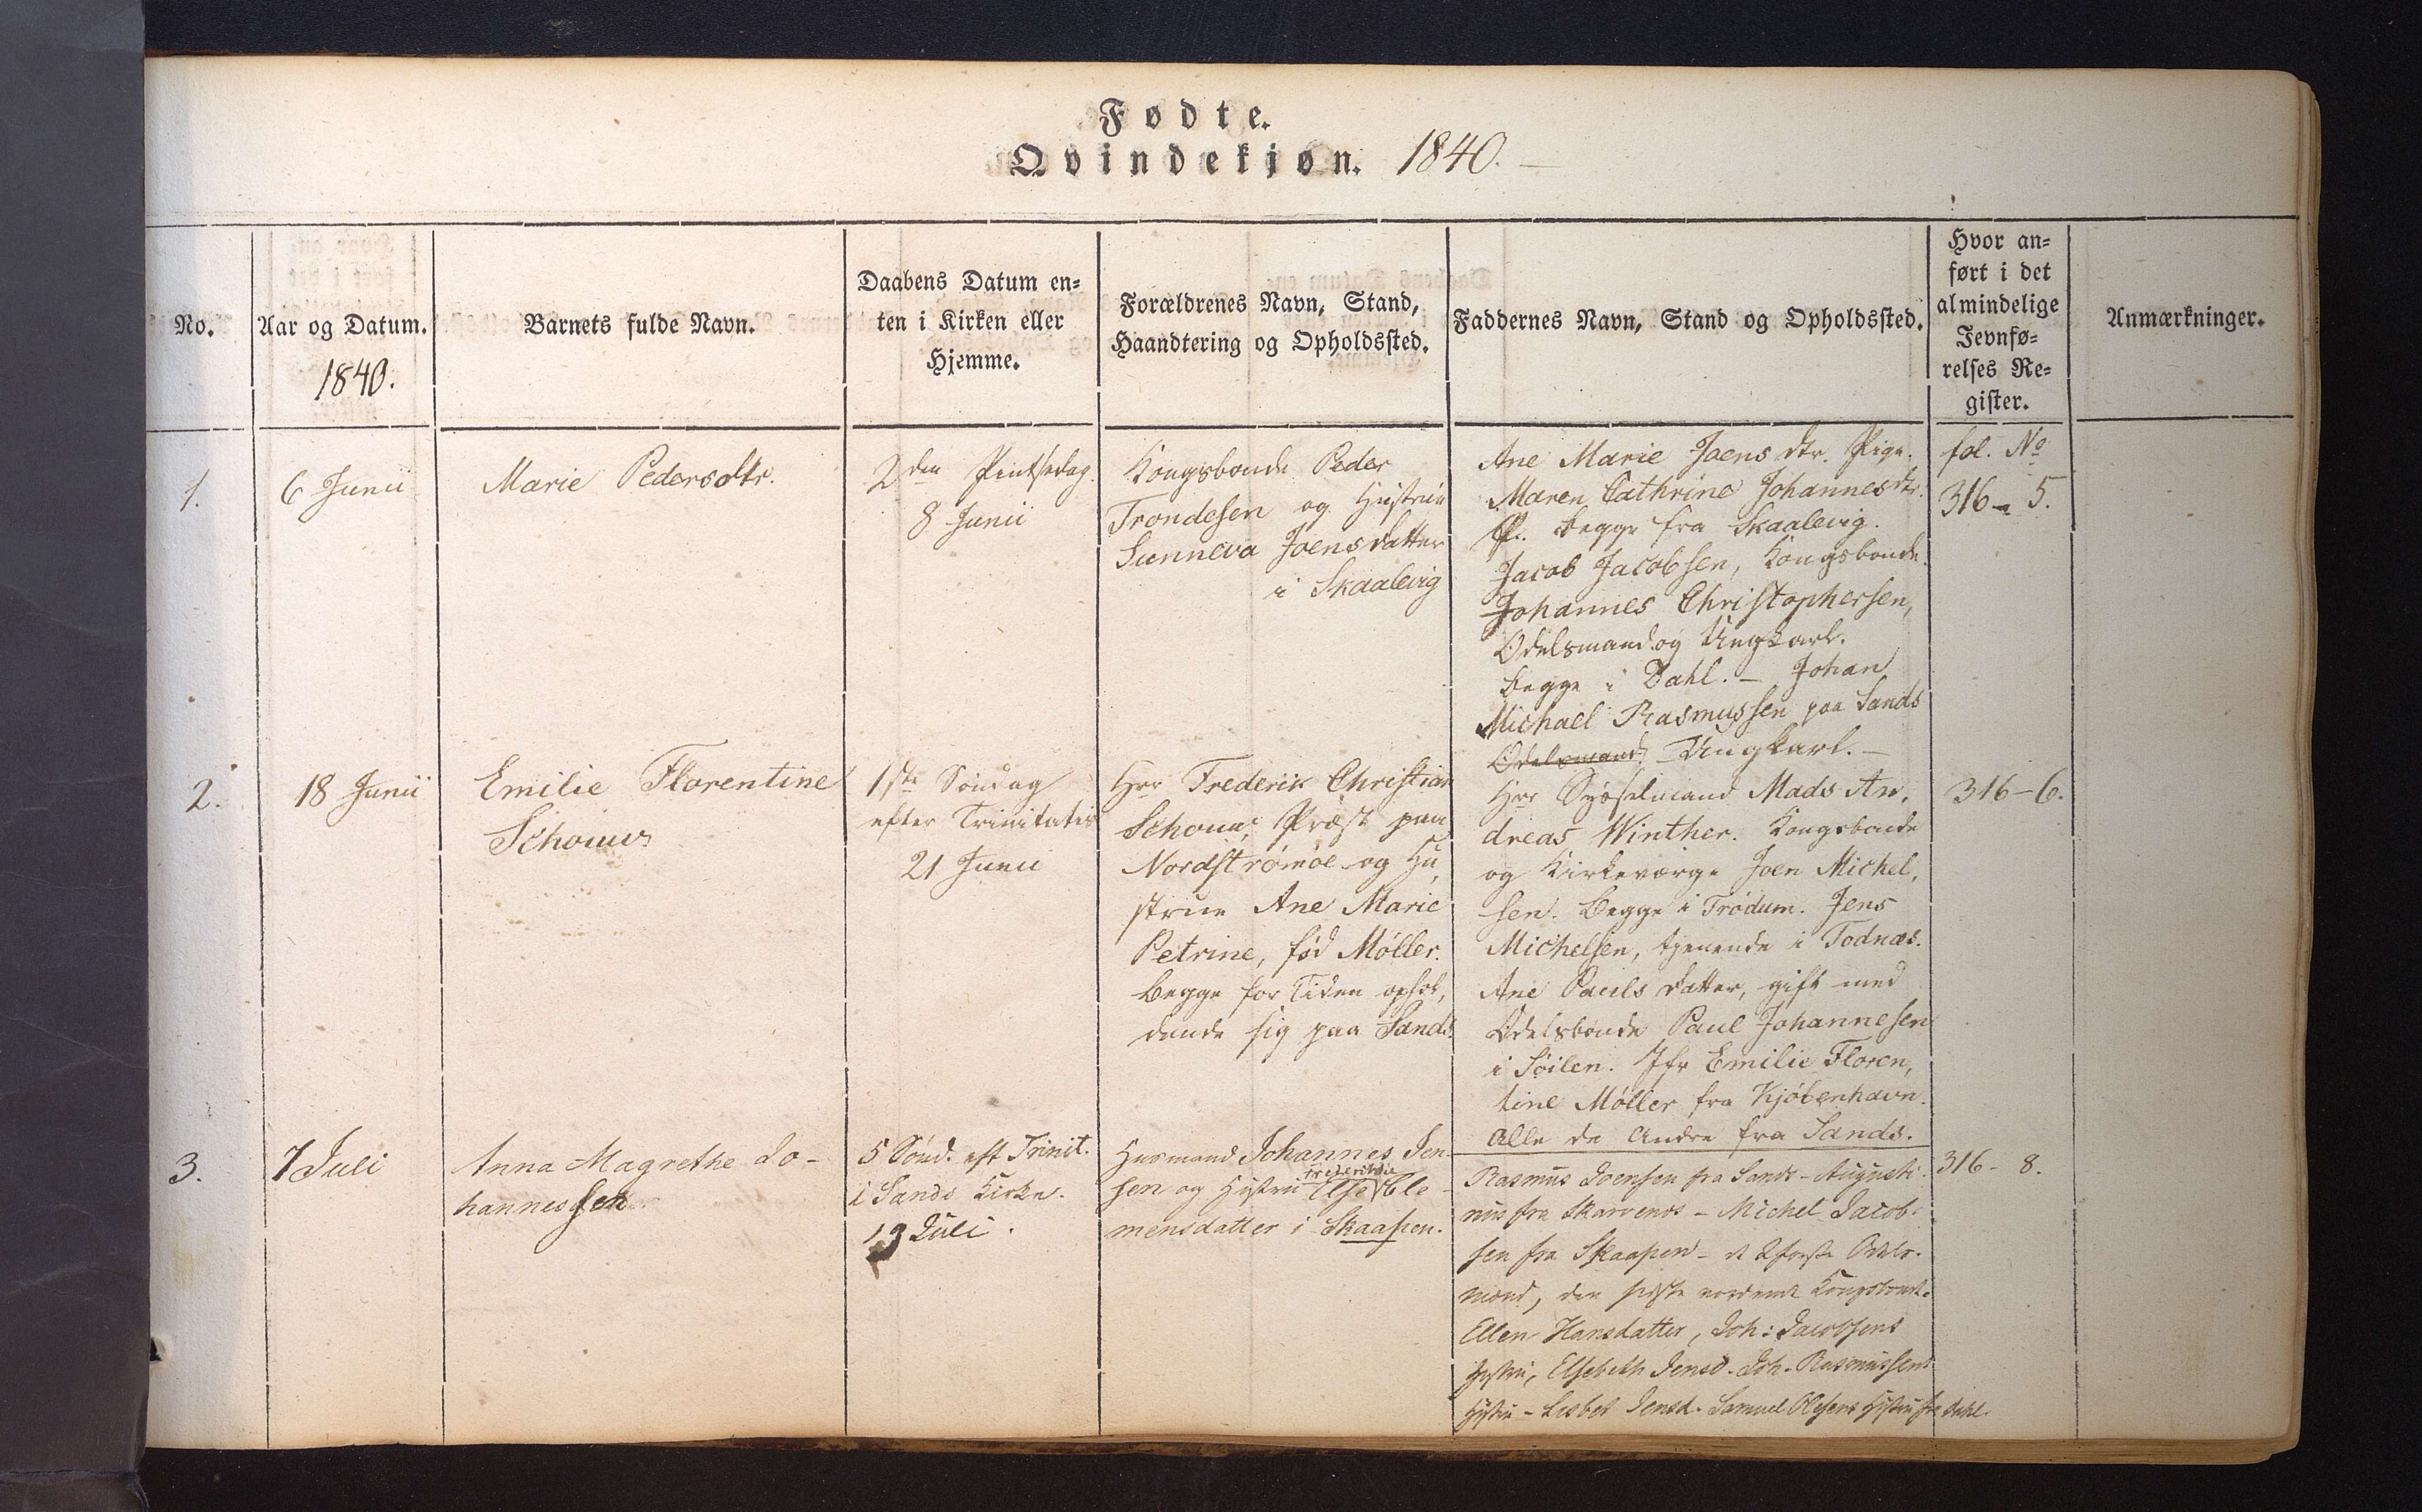 Fødte.
Qvindekjøn. 1840.
No.
Aar og Datum.
1840.
Barnets fulde Navn.
Daabens Datum en-
ten i Kirken eller
Hjemme.
Forældrenes Navn, Stand,
Haandtering og Opholdssted.
Faddernes Navn, Stand og Opholdssted.
Hvor an-
ført i det
almindelige
Jevnfø-
relses Re-
gister.
Anmærkninger.
1.
6 Junii
Marie Pedersdtr.
2den Pintsedag.
8 Junii
Kongsbonde Peder
Trondesen og Hustrue
Sunneva Joensdatter
i Skaalevig
Ane Marie Joens dtr. Pige.
Maren Cathrine Johannesdtr.
P. begge fra Skaalevig.
Jacob Jacobsen, Kongsbonde.
Johannes Christophersen,
Odelsmand og Ungkarl.
begge i Dahl. – Johan
Michael Rasmussen paa Sands
Odelsmand Ungkarl. –
fol. No
316 – 5.
2.
18 Junii
Emilie Florentine
Schouw
1ste Søndag
efter Trinitatis
21 Junii
Hrr Frederik Christian
Schouw, Præst paa
Nordstrømøe og Hu,
strue Ane Marie
Petrine, fød Møller.
begge for Tiden ophol,
dende sig paa Sands.
Hrr Sysselmand Mads An,
dreas Winther. Kongsbonde
og Kirkeværge Joen Michel,
sen. begge i Trødum. Jens
Michelsen, tjenende i Todnæs.
Ane Pauls datter, gift med
Odelsbonde Paul Johannesen
i Søilen. Jfr Emilie Floren,
tine Møller fra Kjöbenhavn.
Alle de Andre fra Sands.
316 – 6.
3.
7 Juli
Anna Magrethe Jo-
hannessen
5 Sönd. eft Trinit.
i Sands Kirke.
19 Juli.
Husmand Johannes Jen
sen og Hustru Else Frederikke Cle-
mensdatter i Skaapen.
Rasmus Joensen fra Sands – Augusti-
nus fra Skarvenes – Michel Jacob-
sen fra Skaapen – de 2 første Odels-
mænd, den sidste Kongsbonde.
Ellen Hansdatter, Joh: Jacobsens
Hustru, Elsebeth Jensd. Joh. Rasmussens
Hustru – Lisbet Jensd. Samuel Olesens Hustru fra Dahl.
316 – 8.